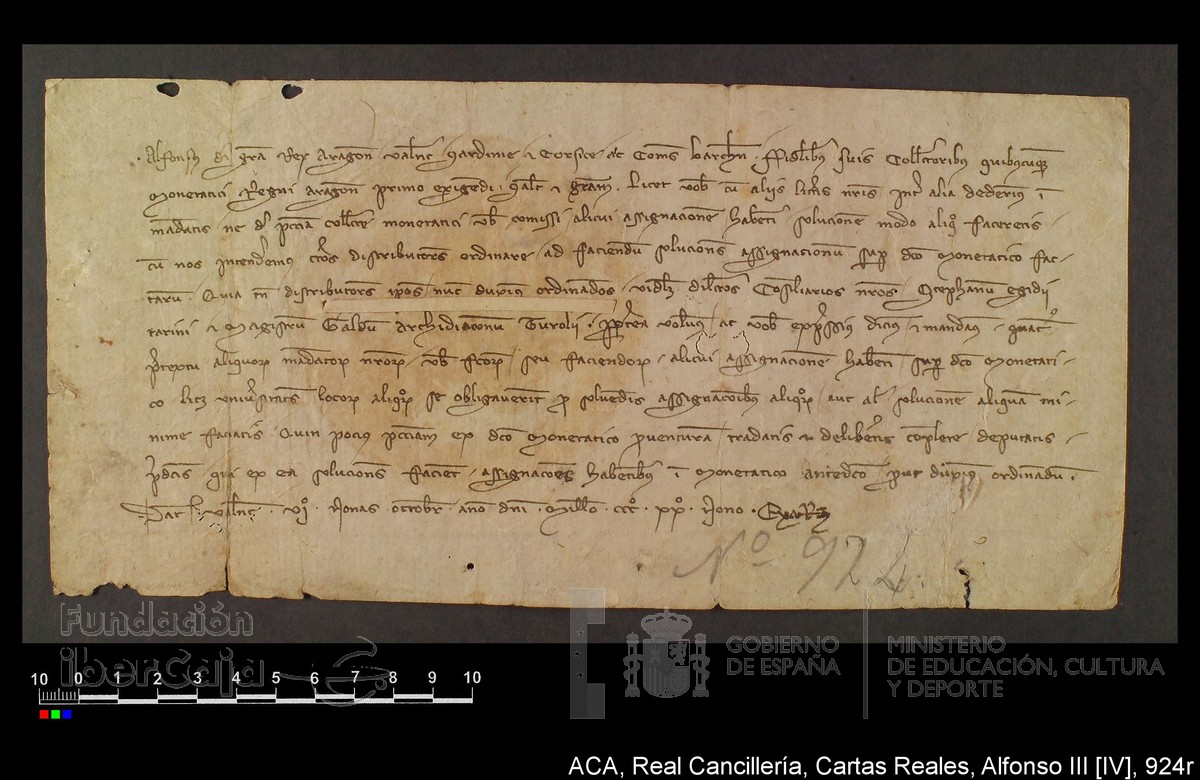 Alfonsus dei gra Rex Aragon Valnc Sardinie & Corsice ac Coms barchn fidelibus suis Collectoribus quibuscumque
Monetatici Regni Aragon primo exigendi saltm & gram. Licet vob cum aliis litris nris intr alia dederimus i
madatis ne de pccia collcte monetatici vob comissi alicui assignacione habenti solucione modo aliquo faceretis
cu nos intendemus ctos distributors ordinare ad faciendu solucions assignacionu sup dco Monetatico fac-
taru. Quia tn distributors ipos nuc duximus ordinados videlz dilcros Cosiliarios nros Stephanu Egidii
tarini & Magistru Galbu archidiaconu Turolii. Proptea volumus ac vob expresse dicimus & mandamus quat
pretextu aliquor madator nror vob fcor seu faciendor alicui assignacione habeti sup dco Monetati-
co licz univsitats locor aliqr se obligaverit p solvedis assignacoibus aliqr aut al solucione aliqua mi-
nime faciatis. Quin pocius pcciam ex dco Monetatico proventuram tradatis & deliberetis coplere deputatis
pdcis qui ex ea solucions faciet assignacoes habetibus i Monetatico antedco put duximus ordinadu.
Dat Valnc. VI. Nonas octobr ano dni Millo. CCC. XX. Nono.
No 924.
Fundación
iberCaja
GOBIERNO
DE ESPAÑA
MINISTERIO
DE EDUCACIÓN, CULTURA
Y DEPORTE
10 0 1 2 3 4 5 6 7 8 9 10
ACA, Real Cancillería, Cartas Reales, Alfonso III [IV], 924r